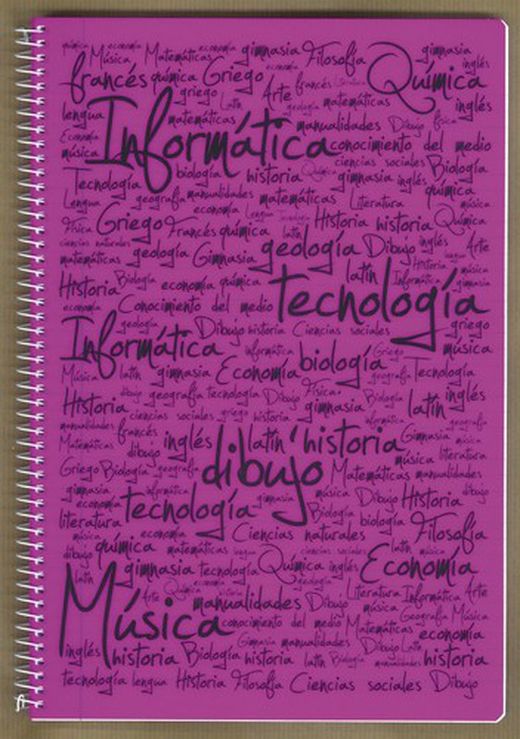 química economía Música Matemáticas economía gimnasia Filosofía gimnasia inglés
francés química Griego economía francés Literatura Química
griego Latín Arte geología matemáticas inglés
lengua matemáticas manualidades Dibujo física
Economía Informática conocimiento del medio
música ciencias sociales Biología
Tecnología biología historia Química gimnasia inglés química
Lengua geografía manualidades matemáticas Literatura música
Física Griego economía Lengua Historia historia Química
Francés química latín
ciencias naturales geología Dibujo inglés Arte
matemáticas geología Gimnasia Historia música
Historia Biología economía química latín Informática gimnasia
economía Conocimiento del medio tecnología
geología Dibujo historia Ciencias sociales griego
Informática informática biología Griego música
Música latín gimnasia Economía geografía Tecnología
Historia dibujo geografía Tecnología Dibujo Física Biología latín inglés
ciencias sociales griego historia gimnasia informática geografía
manualidades francés Gimnasia historia
Matemáticas dibujo inglés latín historia música literatura
Griego Biología geografía dibujo Matemáticas manualidades
gimnasia informática música Dibujo Historia dibujo
economía tecnología gimnasia Biología biología Filosofía
literatura
música economía Ciencias naturales
dibujo química matemáticas lengua latín música
latín gimnasia tecnología Química inglés Economía
Arte Química economía geología Literatura Informática Arte
Música manualidades Dibujo música Geografía Música
conocimiento del medio Matemáticas economía
inglés Gimnasia manualidades Dibujo Latín
historia Biología historia latín Biología manualidades historia
tecnología lengua Historia Filosofía Ciencias sociales Dibujo